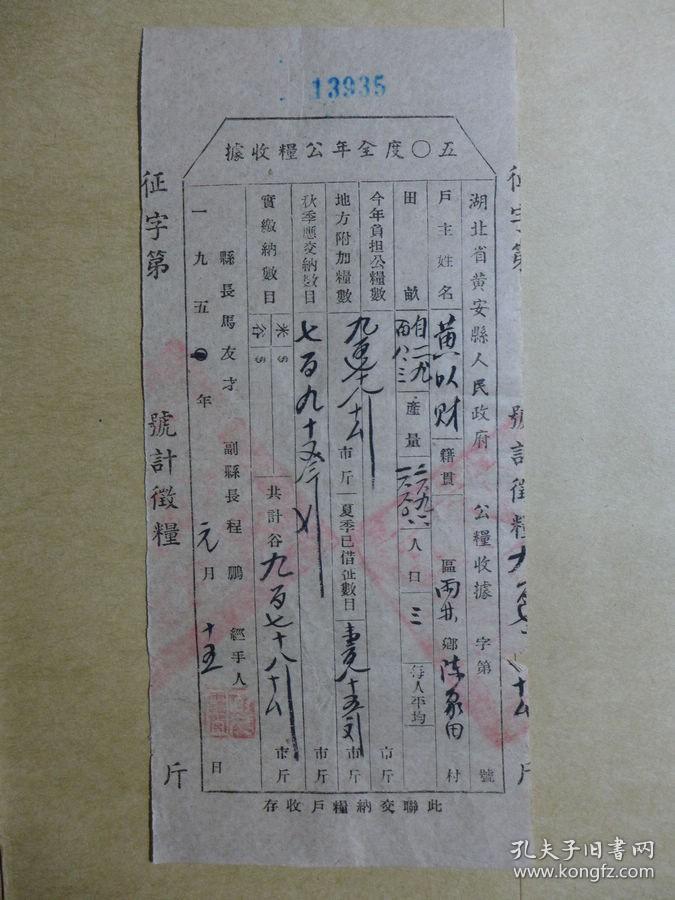 13935
五〇年度全年公糧收據
湖北省黃安縣人民政府 公糧收據 字第 號
戶主姓名 黃以财 籍貫 區 两井 鄉 陈家田 村
田畝 自一九 產量 人口 三 每人平均
今年負担公糧數 市斤
地方附加糧數 市斤 夏季已借征數目 市斤
秋季應交納數目 七百九十 市斤
實繳納數目 米 谷 共計谷 九百七十八 市斤
縣長馬友才 副縣長程鵬 經手人
一九五〇年 元月 十五日
此聯交納糧戶收存
征字第 號計徵糧 斤
征字第 號計徵糧 斤
孔夫子旧书网
www.kongfz.com